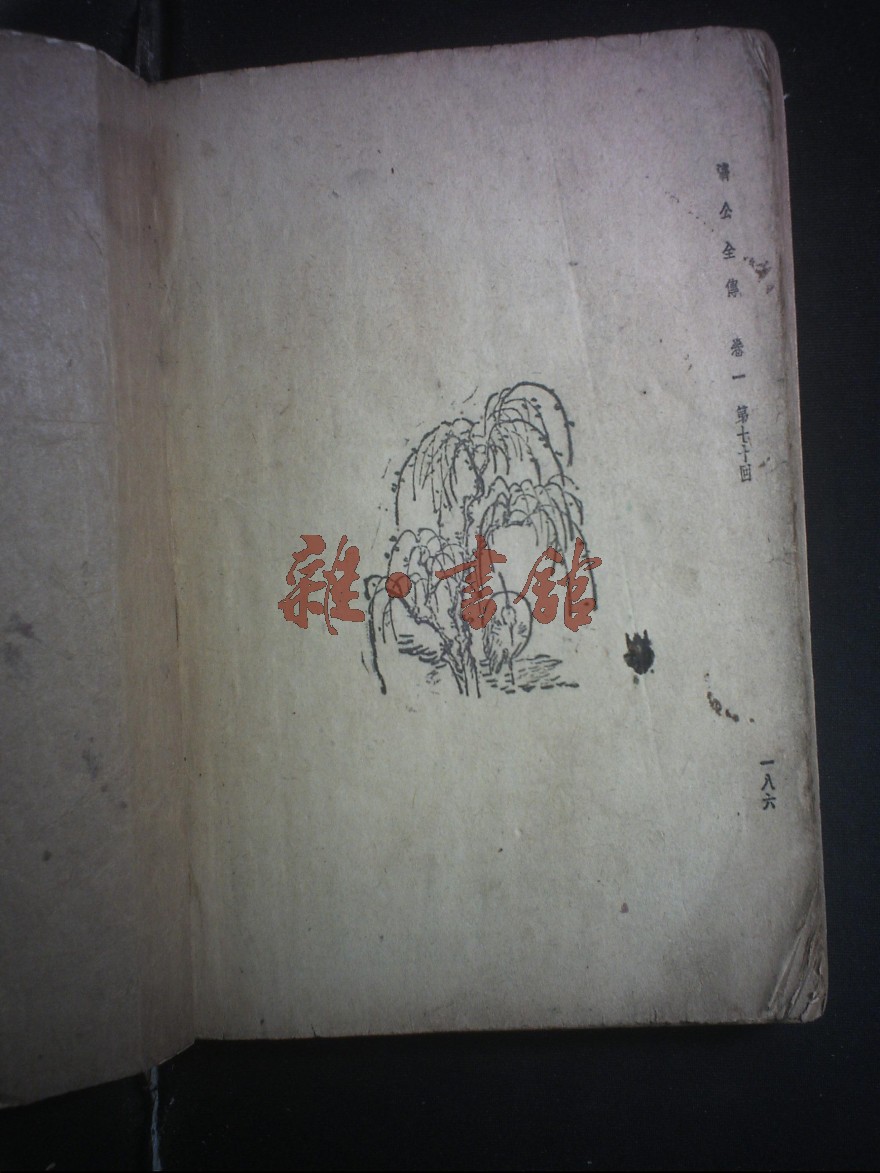 濟公全傳 卷一 第七十回
雜·書館
一八六